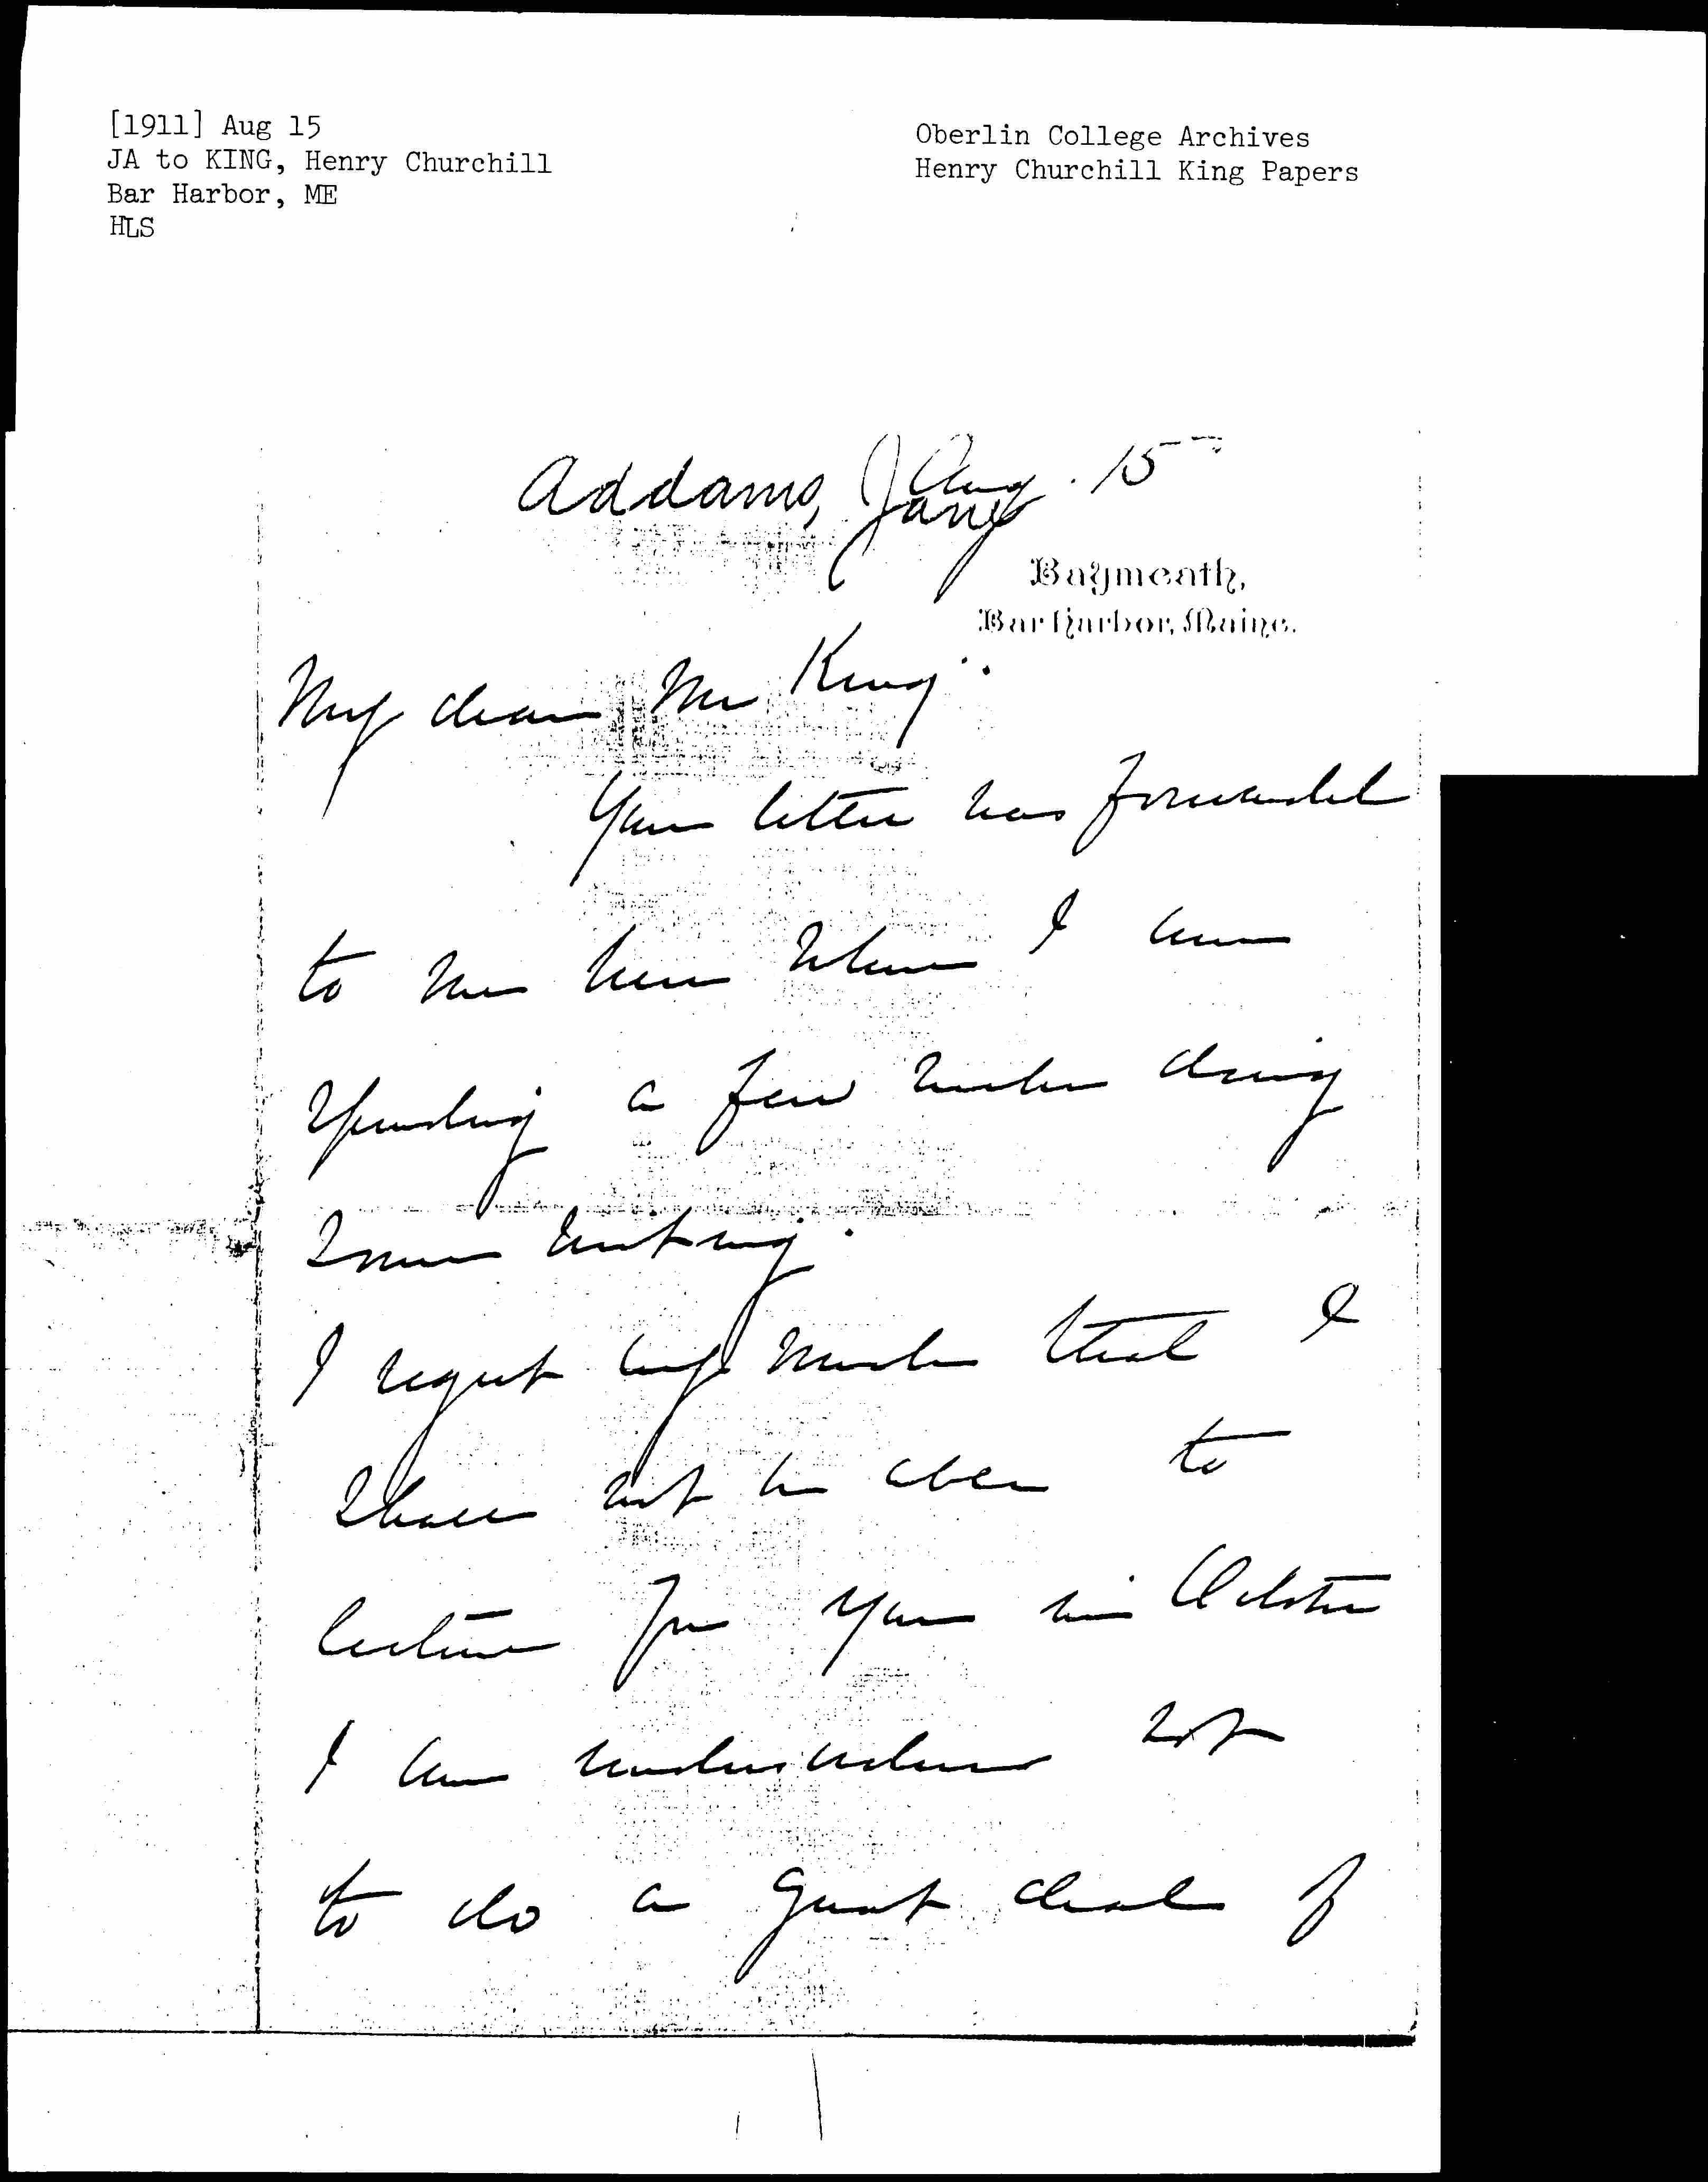 [1911] Aug 15
JA to KING, Henry Churchill
Bar Harbor, ME
HLS
Oberlin College Archives
Henry Churchill King Papers
Addams, Jane
Aug. 15
Baymeath,
Bar Harbor, Maine.
My dear Mr King:
Your letter was forwarded
to me here where I am
spending a few weeks doing
some writing.
I regret very much that I
shall not be able to
lecture for you in October
I am not
to do a great deal of